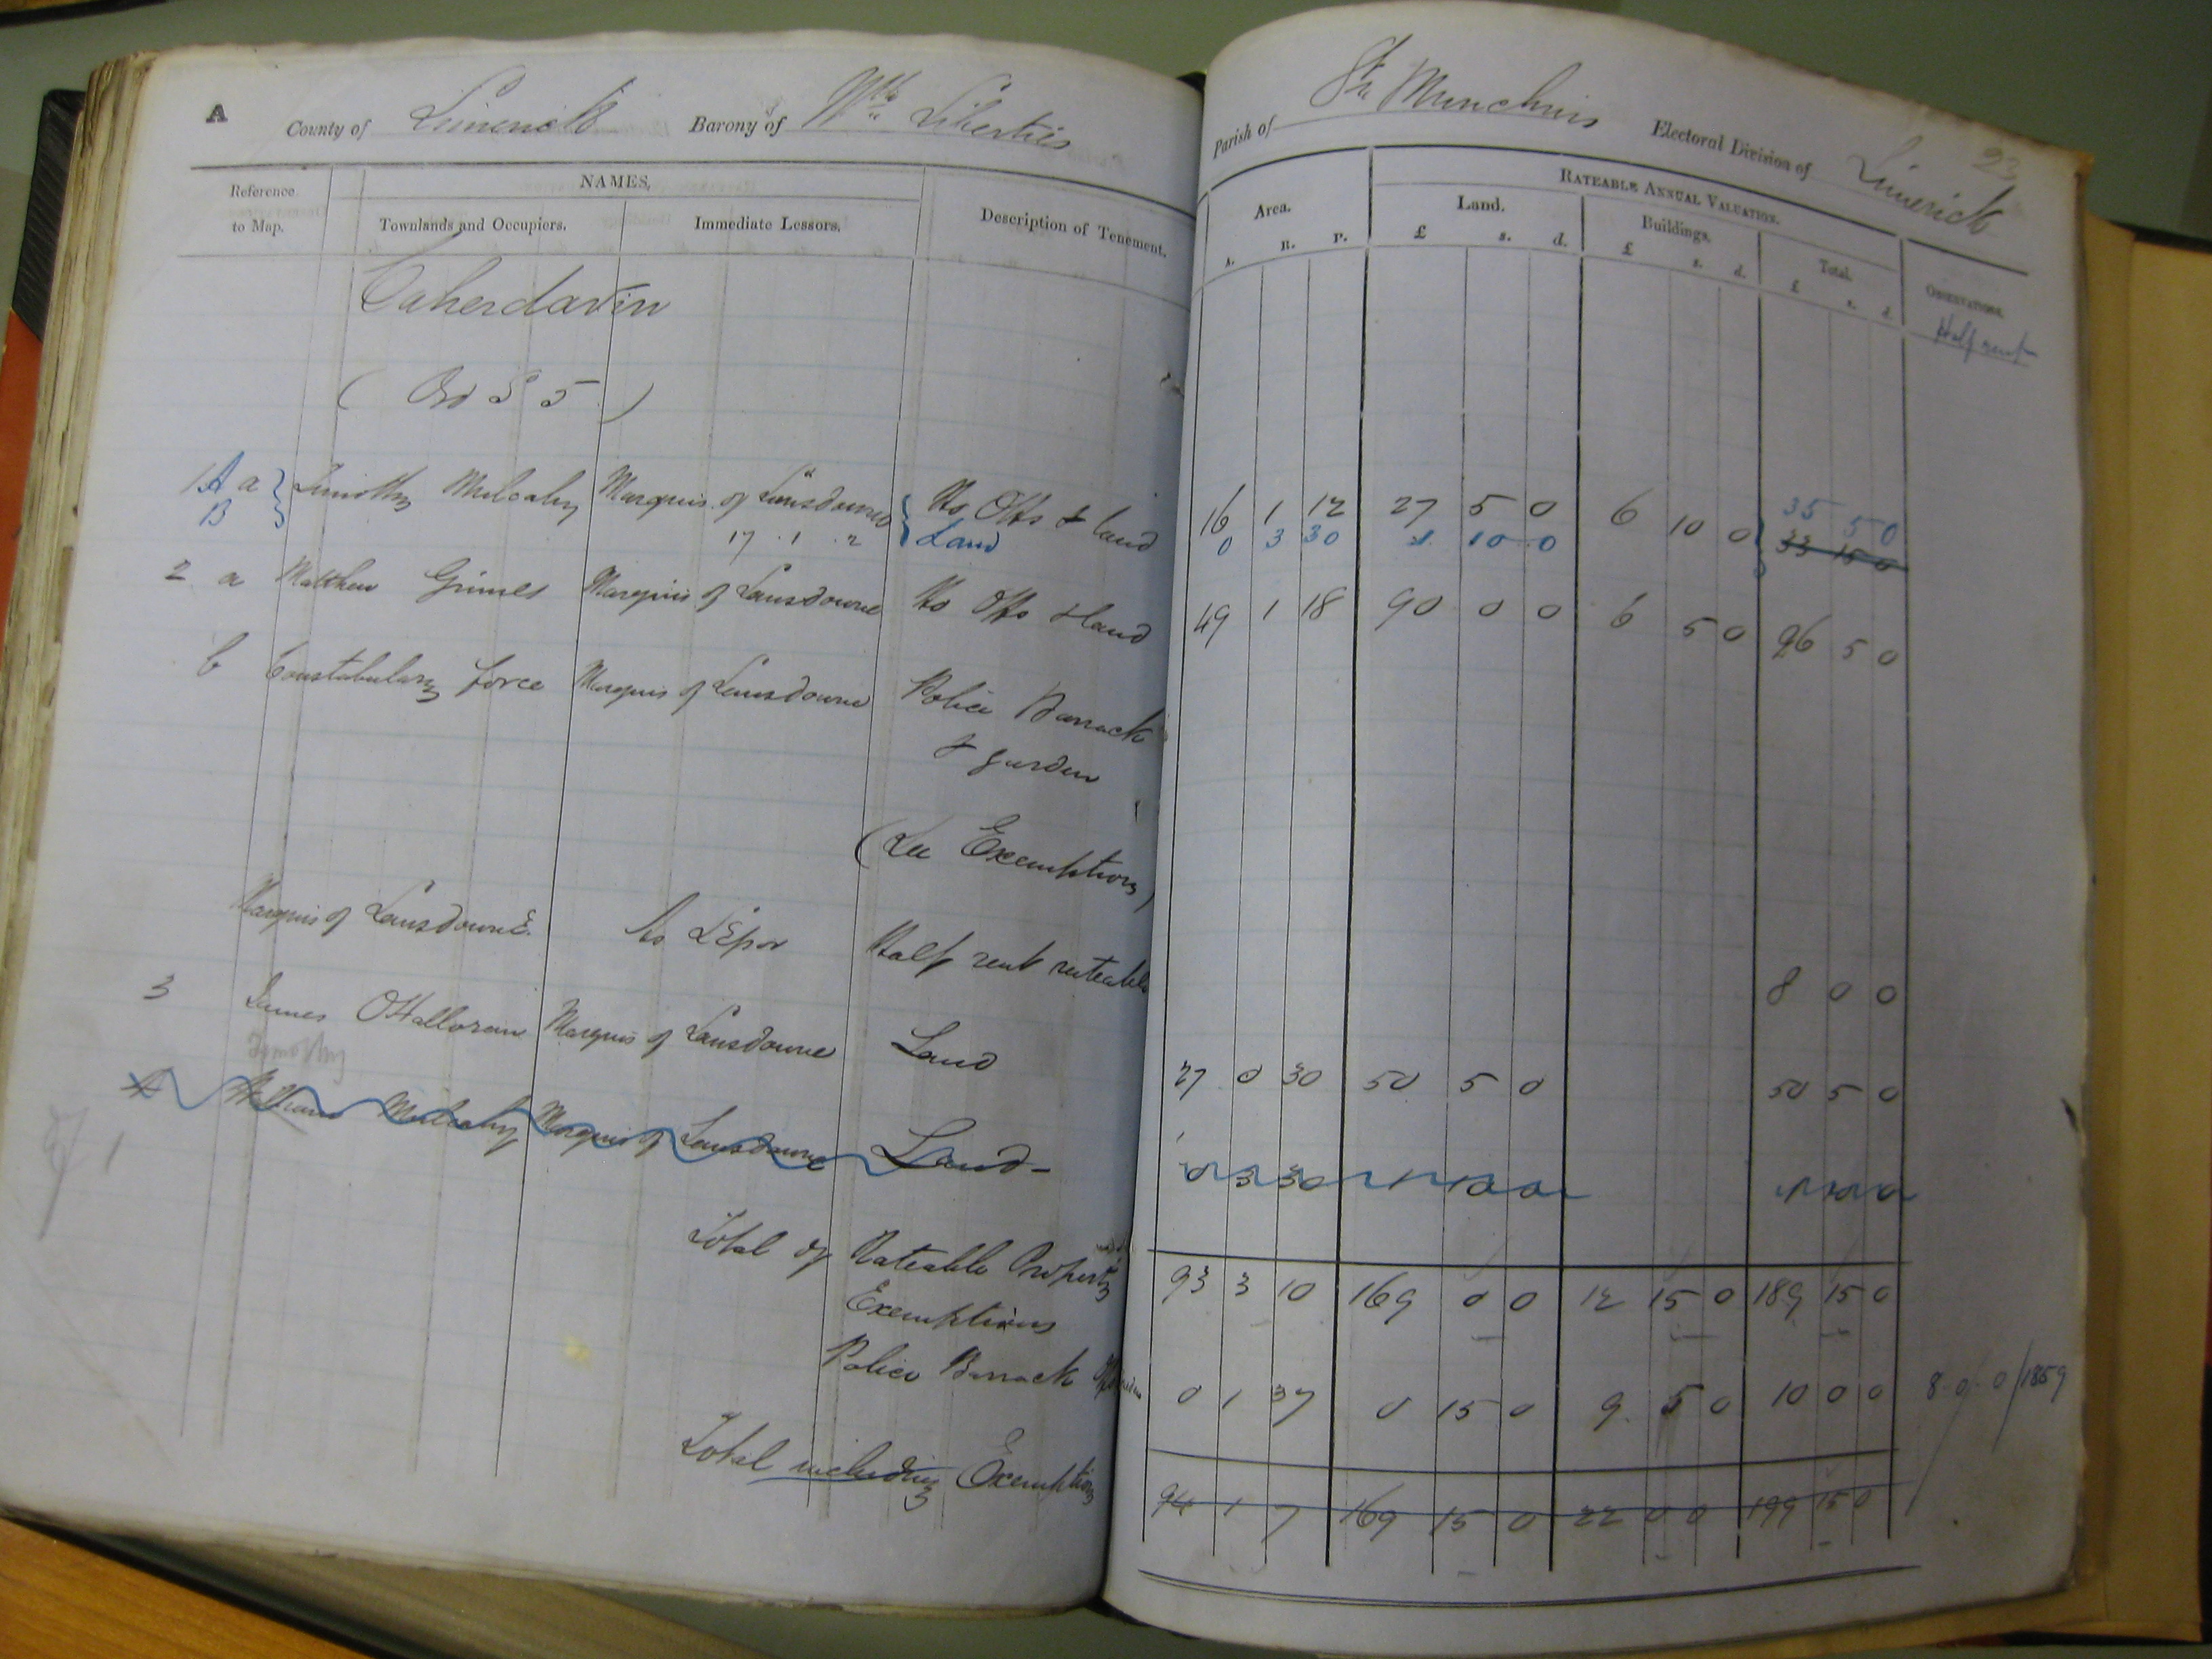 A County of Limerick Barony of Nth Liberties Parish of St. Munchins Electoral Division of Limerick 23
Reference to Map. NAMES. Townlands and Occupiers. Immediate Lessors. Description of Tenement. Area. A. R. P. RATEABLE ANNUAL VALUATION. Land. £ s. d. Buildings. £ s. d. Total. £ s. d. OBSERVATIONS.
Half rent
Caherdavin
(Ord S 5)
1 A a Timothy Mulcahy Marquis of Lansdowne Ho Offs & land 16 1 12 27 5 0 6 10 0 35 5 0
B 17 . 1 . 2 Land 0 3 30 1 10 0 33 15 0
2 a Matthew Grimes Marquis of Lansdowne Ho Offs & land 49 1 18 90 0 0 6 5 0 96 5 0
b Constabulary force Marquis of Lansdowne Police Barrack
& garden
(See Exemptions)
Marquis of Lansdowne Half rent rateable 8 0 0
3 James OHalloran Marquis of Lansdowne Land 27 0 30 50 5 0 50 5 0
Timothy
4 William Mulcahy Marquis of Lansdowne Land 0 3 30 1 10 0 1 10 0
1
Total of Rateable Property 93 3 10 169 0 0 12 15 0 189 15 0
Exemptions
Police Barrack & garden 0 1 37 0 15 0 9 5 0 10 0 0 8 . 0 . 0 / 1859
Total including Exemptions 94 1 7 169 15 0 22 0 0 199 15 0